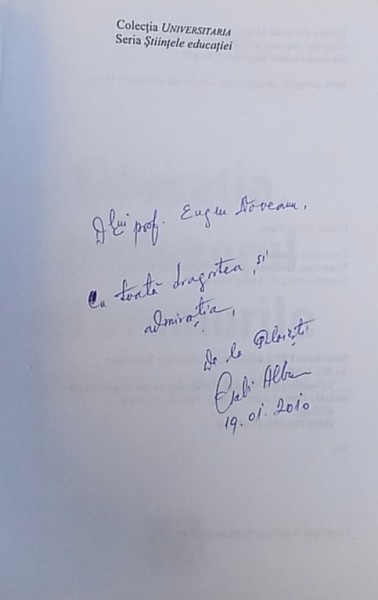 Colecția UNIVERSITARIA
Seria Științele educației
Dlui prof. Eugen Noveanu,
Cu toată dragostea și
admirația,
De la Ploiești
Albu
19.01.2010